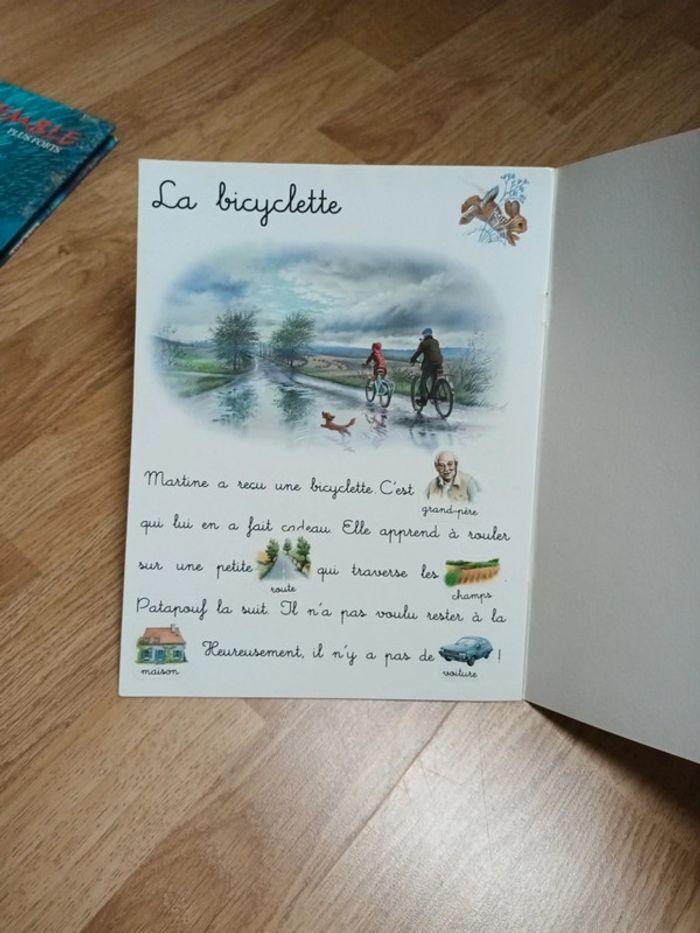 PLUS FORTS
La bicyclette
Martine a reçu une bicyclette. C'est
grand-père
qui lui en a fait cadeau. Elle apprend à rouler
sur une petite qui traverse les
route
champs
Patapouf la suit. Il n'a pas voulu rester à la
Heureusement, il n'y a pas de !
maison
voiture